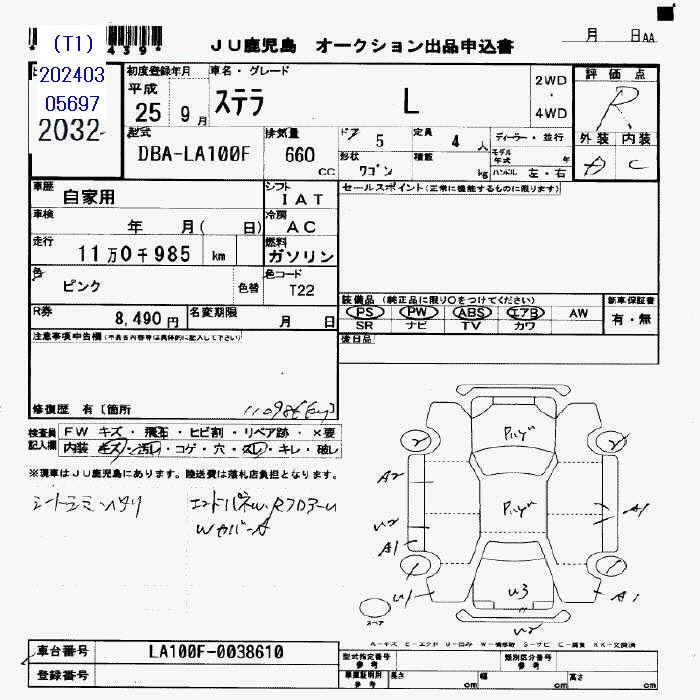 (T1)
202403
05697
2032
439*
JU鹿児島 オークション出品申込書
月 日AA
初度登録年月
平成
25 9月
車名・グレード
ステラ L
2WD
・
4WD
評価点
R
外装 内装
C
型式
DBA-LA100F
排気量
660 CC
ドア 5
定員 4人
ディーラー・並行
形状 ワゴン
積載 kg
モデル年式 年
ハンドル 左・右
車歴
自家用
シフト
IAT
セールスポイント(正常に機能するものに限ります)
車検
年 月( 日)
冷房
AC
走行
11万0千985 km
燃料
ガソリン
色
ピンク
色替
色コード
T22
装備品(純正品に限り○をつけてください)
新車保証書
PS PW ABS エアB AW
有・無
SR ナビ TV カワ
R券
8,490円
名変期限
月 日
後日品
注意事項申告欄(不具合内容等は具体的に記入して下さい)
修復歴 有〔箇所
検査員記入欄
FW キズ・飛石・ヒビ割・リペア跡・×要
内装 キズ・汚レ・コゲ・穴・スレ・キレ・破レ
※現車はJU鹿児島にあります。陸送費は落札店負担となります。
A2
U2
A1
U1
A1
A1
U3
U2
スペア
A-キズ E-エクボ U-凹み W-補修跡 S-サビ C-腐食 XX-交換済
車台番号
LA100F-0038610
登録番号
型式指定番号
参考
類別区分番号
参考
車庫証明用
参考
長さ cm
幅 cm
高さ cm